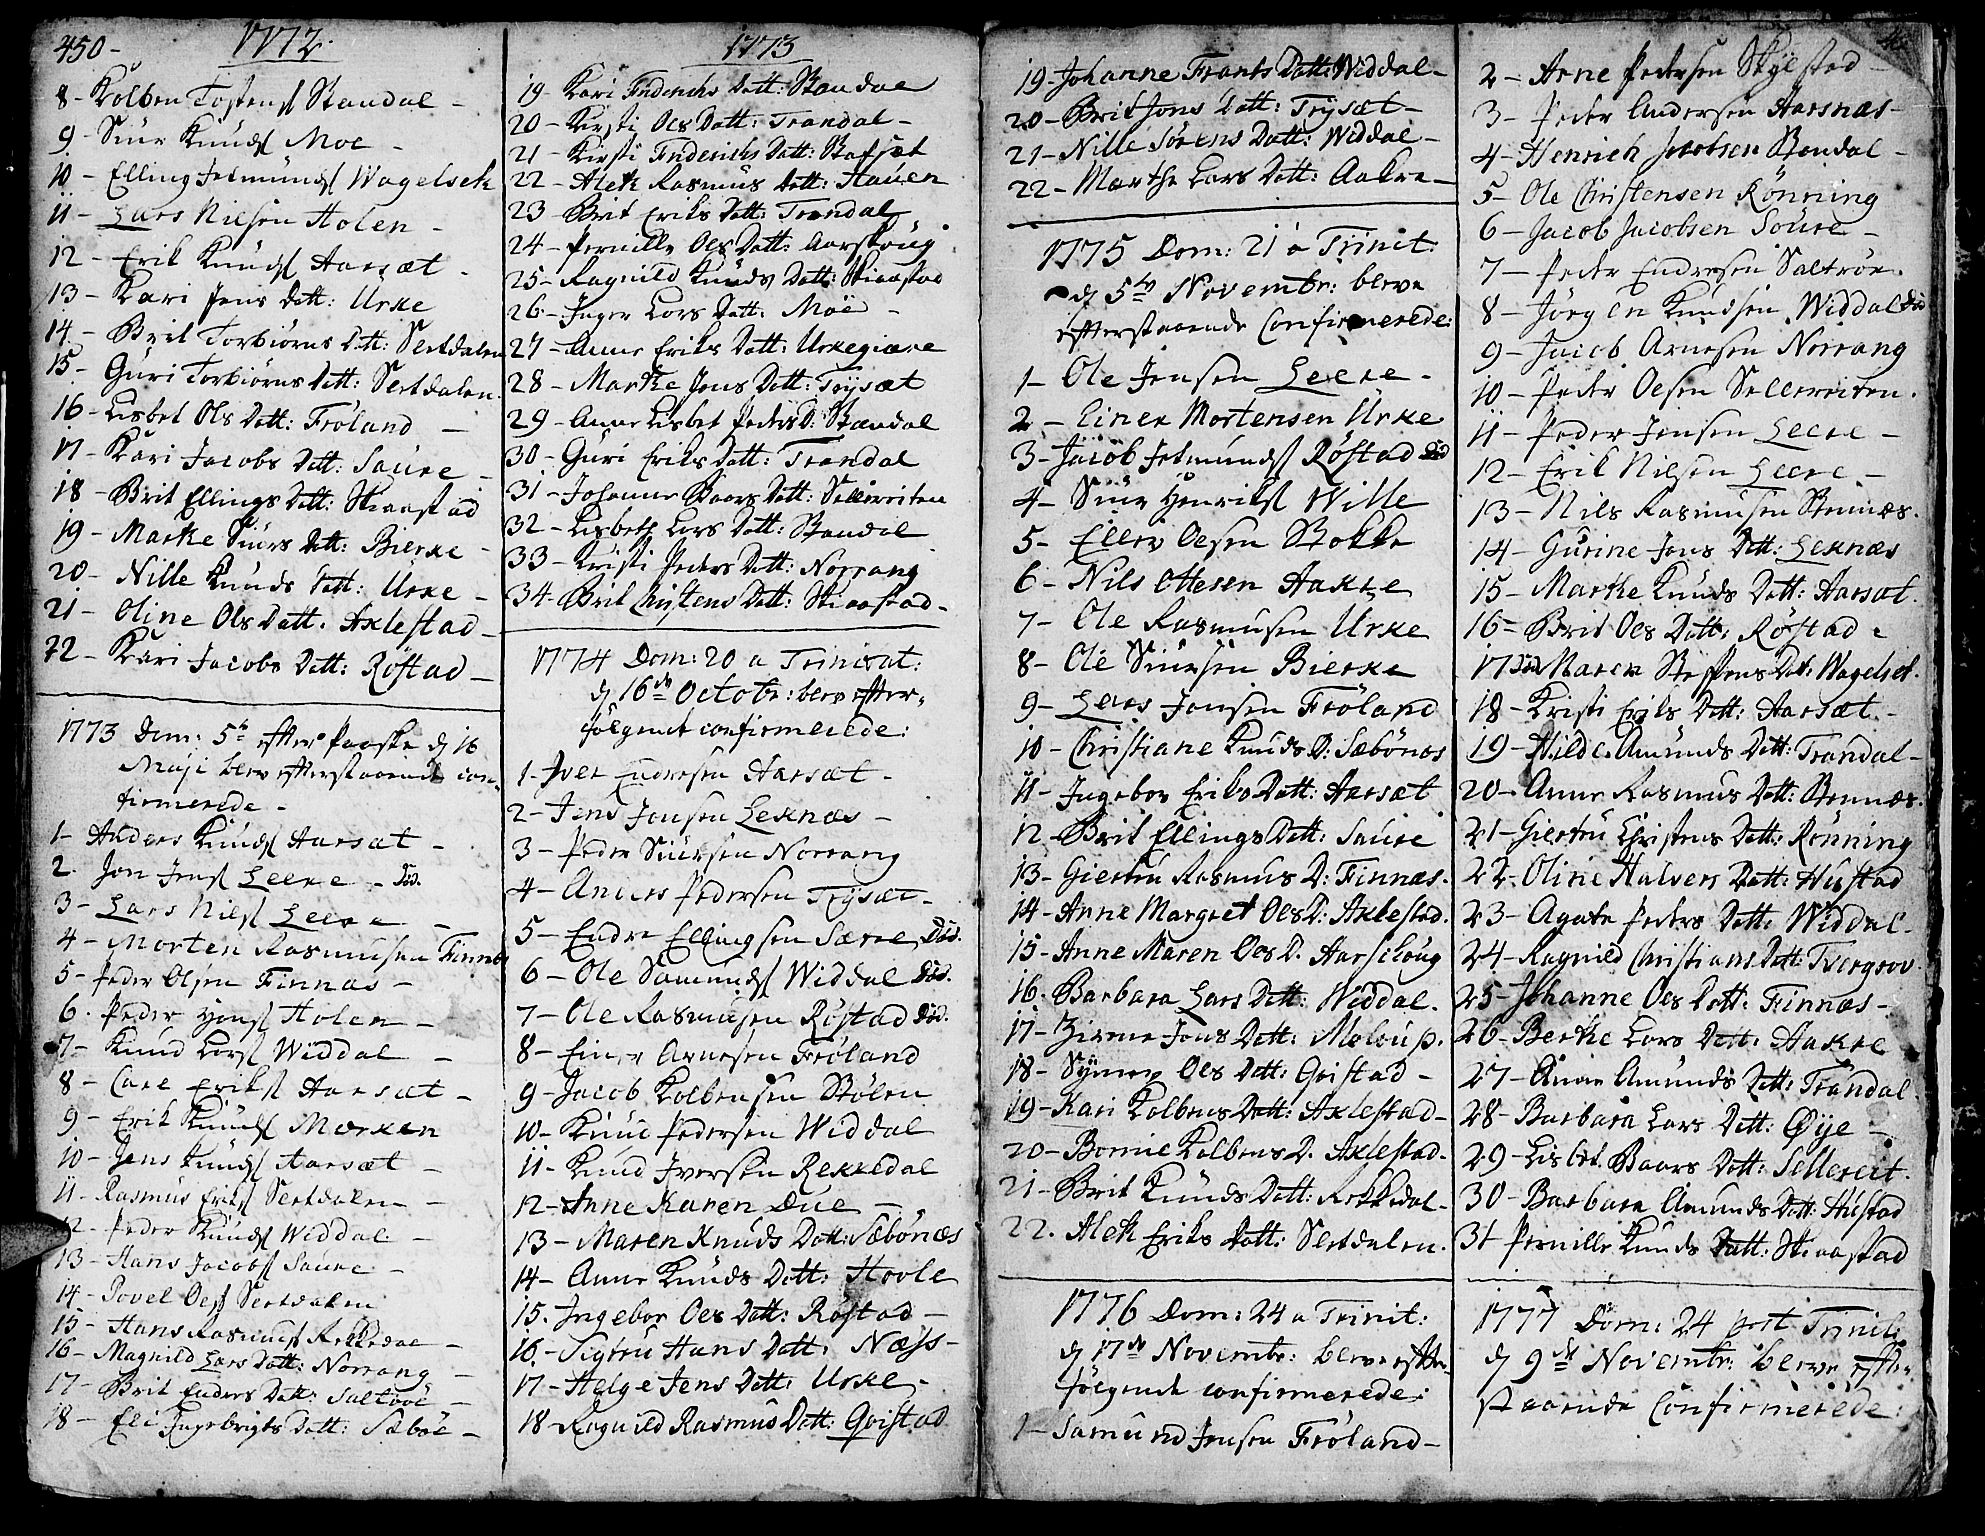 450-
1772.
8- Kolben Tostens Standal -
9- Siur Knuds Moe -
10- Elling Jetmunds Wagelsek
11- Lars Nilsen Holen -
12- Erik Knuds Aarsæt -
13- Kari Jens Datt: Urke
14- Brit Torbiørns Datt: Sertdalen
15- Guri Torbiørns Datt: Sertdalen.
16- Lisbet Ols Datt: Frøland -
17- Kari Jacobs Datt: Saure -
18- Brit Ellings Datt: Skiaastad
19- Marte Siurs Datt: Bierke -
20- Nille Knuds Datt: Urke -
21- Oline Ols Datt. Axlestad -
22- Kari Jacobs Datt: Røstad -
1773 Dom: 5te efter Paaske d 16
Maji blev efterstaaende con-
firmerede -
1- Anders Knuds Aarsæt -
2. Jon Jens Leere - Død.
3- Lars Niels Leere -
4- Morten Rasmusen Finnes
5- Peder Olsen Finnas -
6. Peder Hans Holen -
7- Knud Lars Widdal -
8- Care Eriks Aarsæt -
9- Erik Knuds Morken
10- Jens Knuds Aarsæt -
11- Rasmus Eriks Sertdalen -
12- Peder Knuds Widdal -
13- Hans Jacobs Saure -
14- Povel Oes Sertdalen
15- Hans Rasmus Rekkedal -
16- Magnild Lars Datt: Norrang -
17- Brit Enders Datt: Saltrøe -
18- Eli Ingebrigts Datt: Sæbøe -
1773
19- Kari Friderichs Datt: Standal
20- Kirsti Oes Datt: Trandal -
21- Kirsti Friderichs Datt: Batsæt
22- Alek Rasmus Datt: Hauen
23- Brit Eriks Datt: Trandal
24- Pernille Oes Datt: Aarskoug
25- Ragnild Knuds Datt: Skiaastad
26- Inger Lars Datt: Moe -
27- Anne Eriks Datt: Urkegiære
28- Marte Jens Datt: Trysæt
29- Anne Lisbet Peders D: Standal
30- Guri Eriks Datt: Trandal
31- Johanne Baars Datt: Sellereiten
32- Lisbeth Lars Datt: Standal
33- Kristi Peders Datt: Norrang
34- Brit Christens Datt: Skiaastad -
1774 Dom: 20 a Trinitat:
d 16de Octobr: blev efter-
følgende confirmerede:
1- Iver Endresen Aarsæt -
2- Jens Jonsen Leknæs -
3- Peder Siursen Norrang
4- Anders Pedersen Trysæt -
5- Endre Ellingsen Særre, Død.
6- Ole Samunds Widdal Død.
7- Ole Rasmusen Røstad Død.
8- Einer Arnesen Frøland
9- Jacob Kolbensen Stølen
10- Knud Pedersen Widdal
11- Knud Iversen Rekkedal
12- Anne Karen Due -
13- Maren Knuds Datt: Sæbønæs
14- Anne Knuds Datt: Hovle
15. Ingebor Oes Datt: Røstad -
16- Sigtru Hans Datt: Næss -
17- Helge Jens Datt: Urke -
18- Ragnild Rasmus Datt: Qvistad
19- Johanne Frants Datt: Widdal -
20- Brit Jons Datt: Trysæt -
21- Nille Sørens Datt: Widdal -
22- Marthe Lars Datt: Aakre -
1775 Dom: 21 a Trinit:
d 5te Novembr: bleve
efterstaaende Confirmerede:
1- Ole Jensen Leere -
2- Einer Mortensen Urke
3- Jacob Jetmunds Røstad Død
4- Siur Henriks Wille
5- Ellev Oesen Stokke
6- Nils Ottesen Aakre
7- Ole Rasmusen Urke
8- Ole Siursen Bierke
9- Lars Jonsen Frøland
10- Christiane Knuds D: Sæbønæs
11- Ingebor Eriks Datt: Aarsæt
12- Brit Ellings Datt: Saure
13- Giertru Rasmus D: Finnæs.
14- Anne Margret Oes D: Axlestad.
15- Anne Maren Oes D. Aarskoug
16. Barbara Lars Datt: Widdal.
17- Zirene Jons Datt: Moloup.
18- Synnev Oes Datt: Qvistad -
19- Kari Kolbens Datt: Axlestad -
20- Bornie Kolbens D. Axlestad.
21- Brit Knuds Datt: Rekkedal -
22. Alek Eriks Datt: Sertdalen.
1776 Dom: 24 a Trinit:
d 17de Novembr: bleve efter-
følgende confirmerede:
1- Samund Jensen Frøland -
2- Arne Pedersen Skylstad -
3- Peder Andersen Aarsnæs -
4- Henrich Jacobsen Standal -
5- Ole Christensen Rønning
6- Jacob Jacobsen Soure -
7- Peder Endresen Saltrøe.
8- Jørgen Knudsen Widdal Død
9- Jacob Arnesen Norrang
10- Peder Oesen Sellereiten.
11- Peder Jensen Leere -
12- Erik Nilsen Leere -
13- Nils Rasmusen Stennæs.
14- Gurine Jons Datt: Leknæs
15- Marthe Knuds Datt: Aarsæt.
16- Brit Oes Datt: Røstad -
17 Død Maren Steffens Dat: Wagelset.
18- Kristi Eriks Datt: Aarsæt -
19- Hilde Amunds Datt: Trandal -
20- Anne Rasmus Datt: Stennæs.
21- Giertru Christens Datt: Rønning
22- Oline Halvers Datt: Hustad
23- Agate Peders Datt: Widdal -
24- Ragnild Christians Datt: Tvergrov.
25- Johanne Oes Datt: Finnæs -
26- Berthe Lars Datt: Aakre
27- Anne Amunds Datt: Trandal.
28- Barbara Lars Datt: Øye -
29- Lisbet Baars Datt: Sellereit.
30- Barbara Amunds Datt: Hustad
31 Pernille Knuds Datt: Skiaastad
1777 Dom: 24 post Trinit:
d 9de Novembr: bleve efter-
staaende Confirmerede: